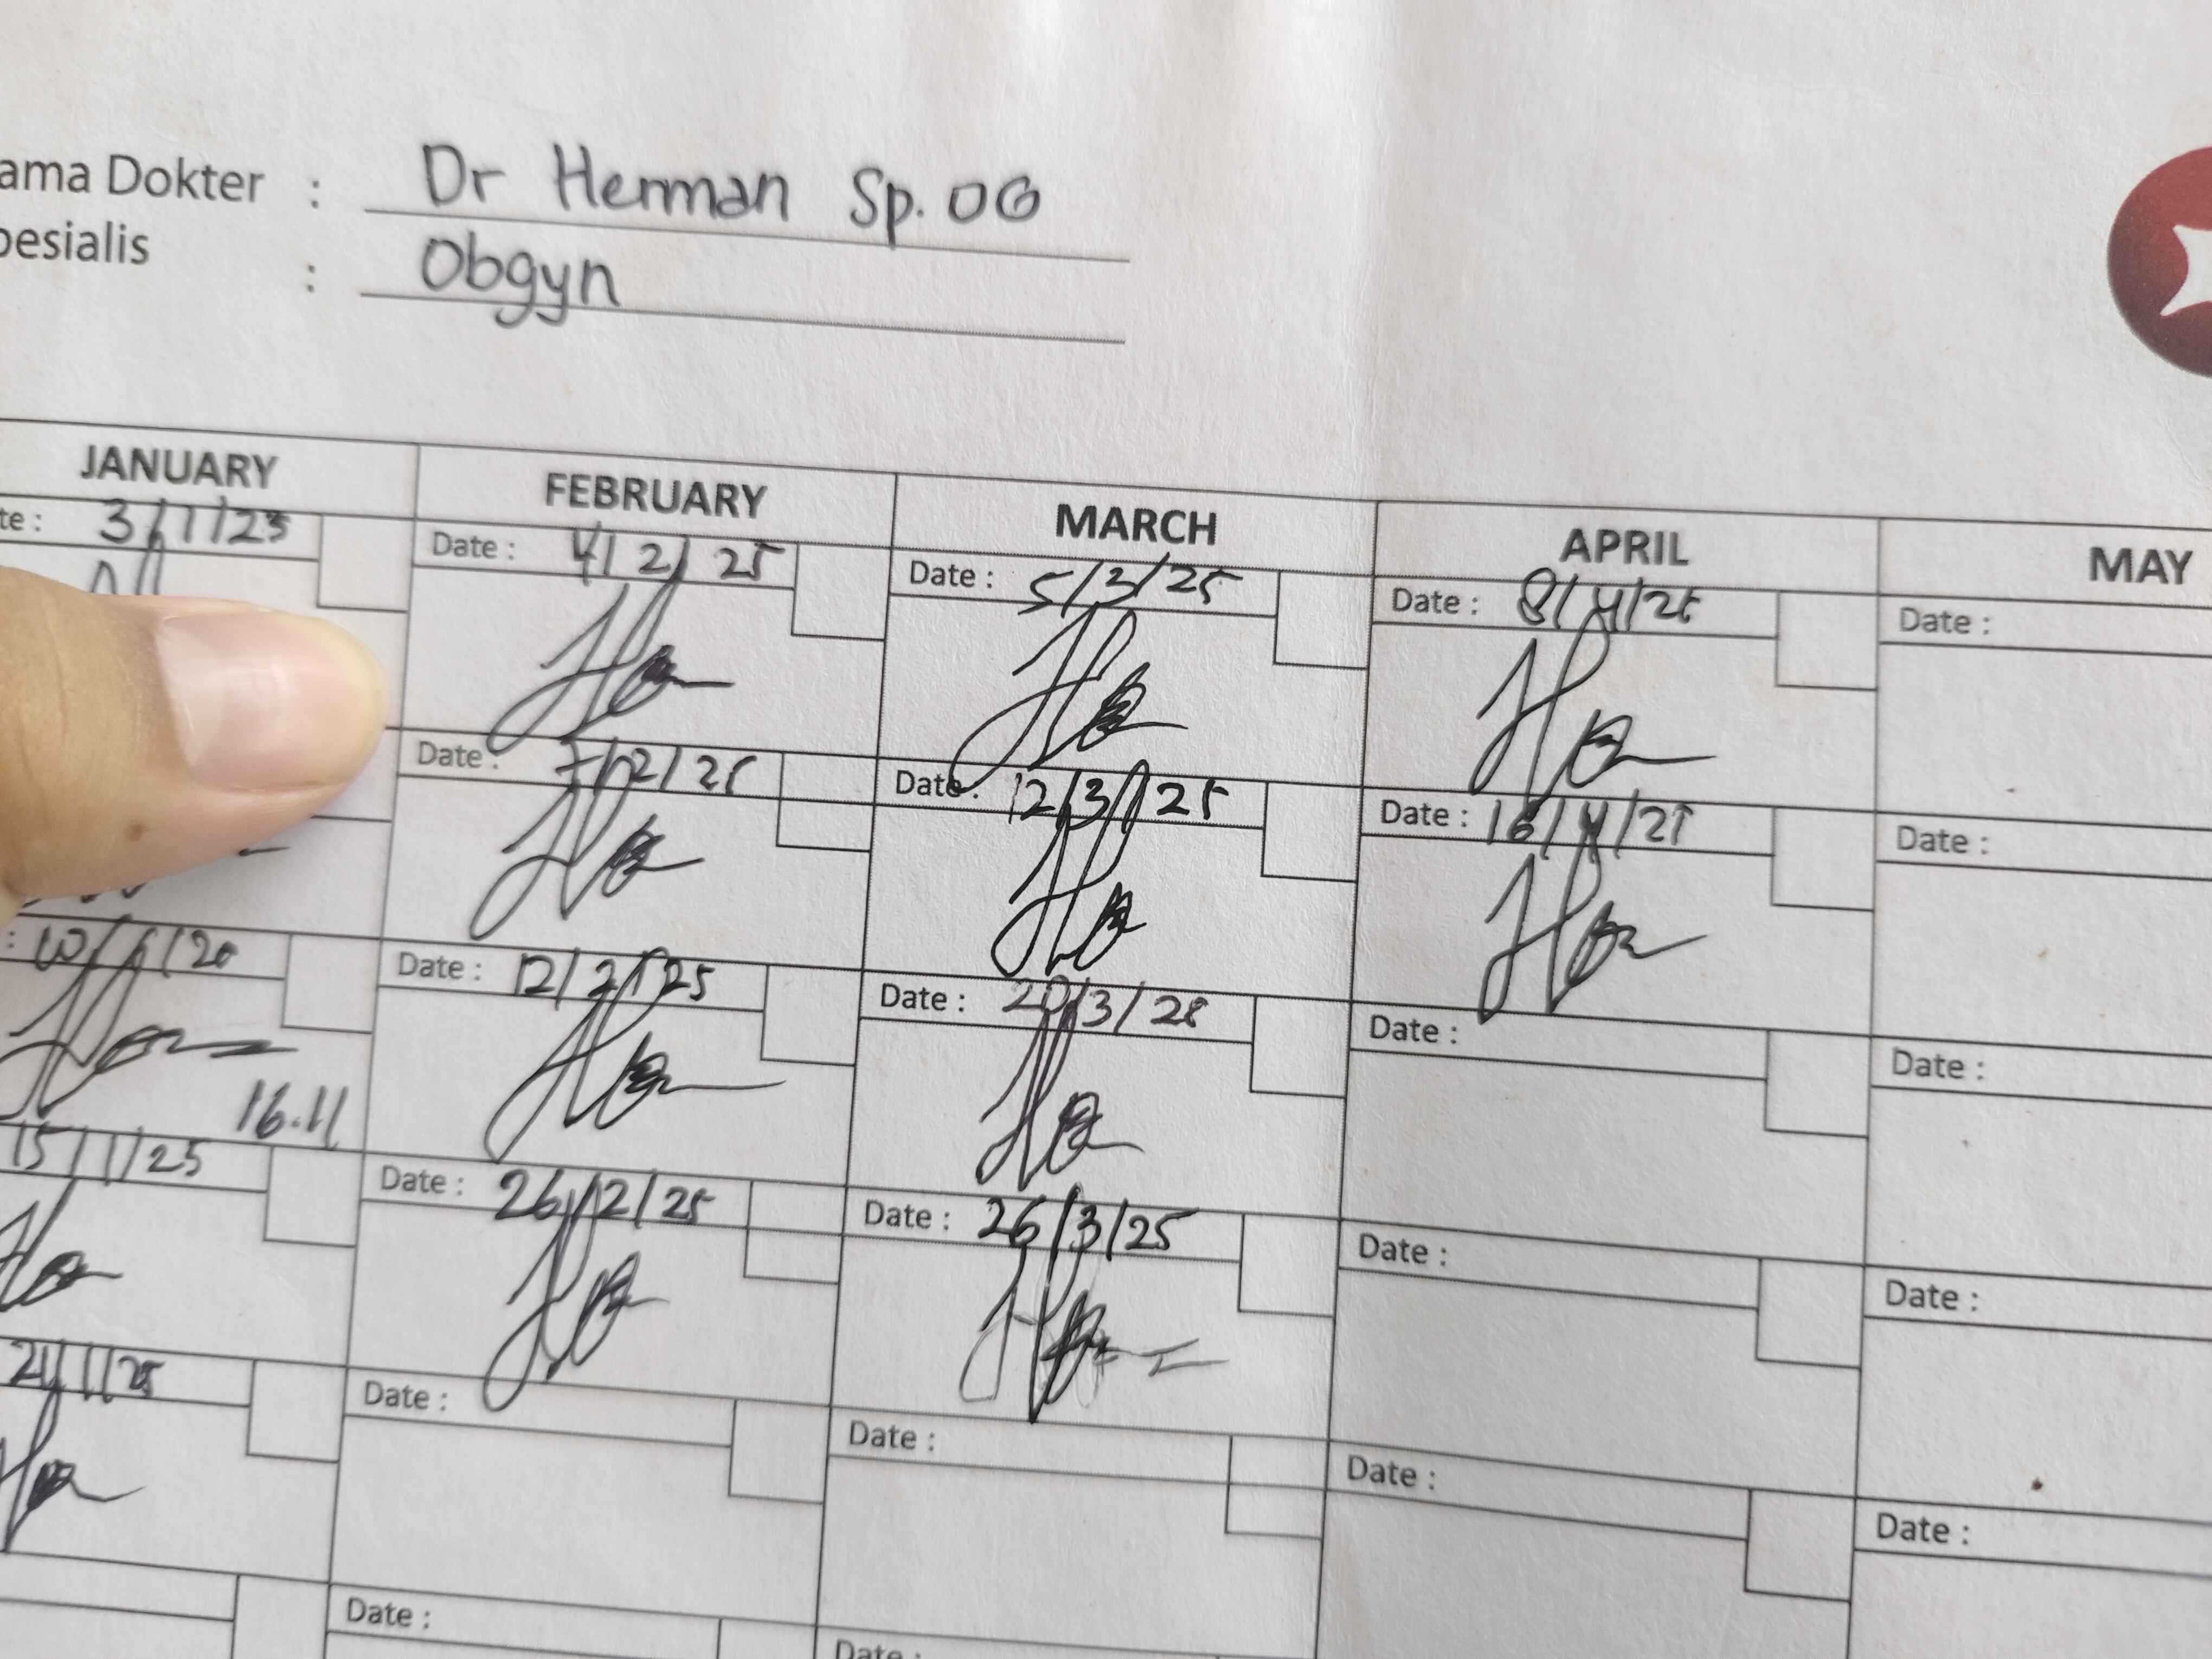 ama Dokter : Dr Herman Sp. OG
pesialis : Obgyn
JANUARY FEBRUARY MARCH APRIL MAY
te : 3/1/25 Date : 4/2/25 Date : 5/3/25 Date : 8/4/25 Date :
Date : 7/2/25 Date : 12/3/25 Date : 16/4/25 Date :
: Date : 12/2/25 Date : 20/3/25 Date : Date :
16.11
15/1/25 Date : 26/2/25 Date : 26/3/25 Date : Date :
21/1/25 Date : Date : Date : Date :
Date : Date :